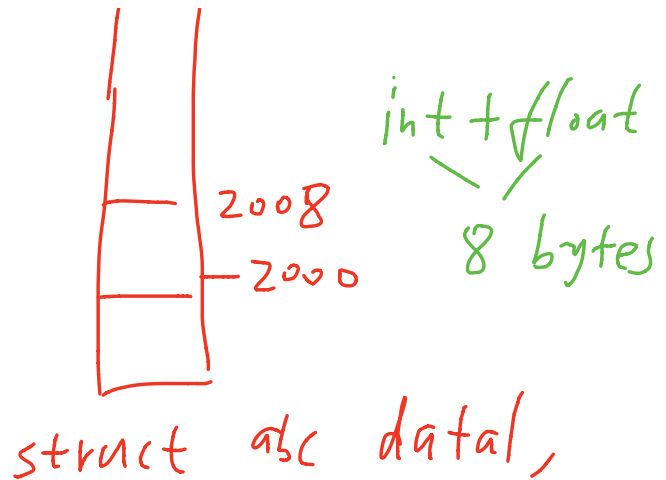 int + float
2008
8 bytes
2000
struct abc data1,